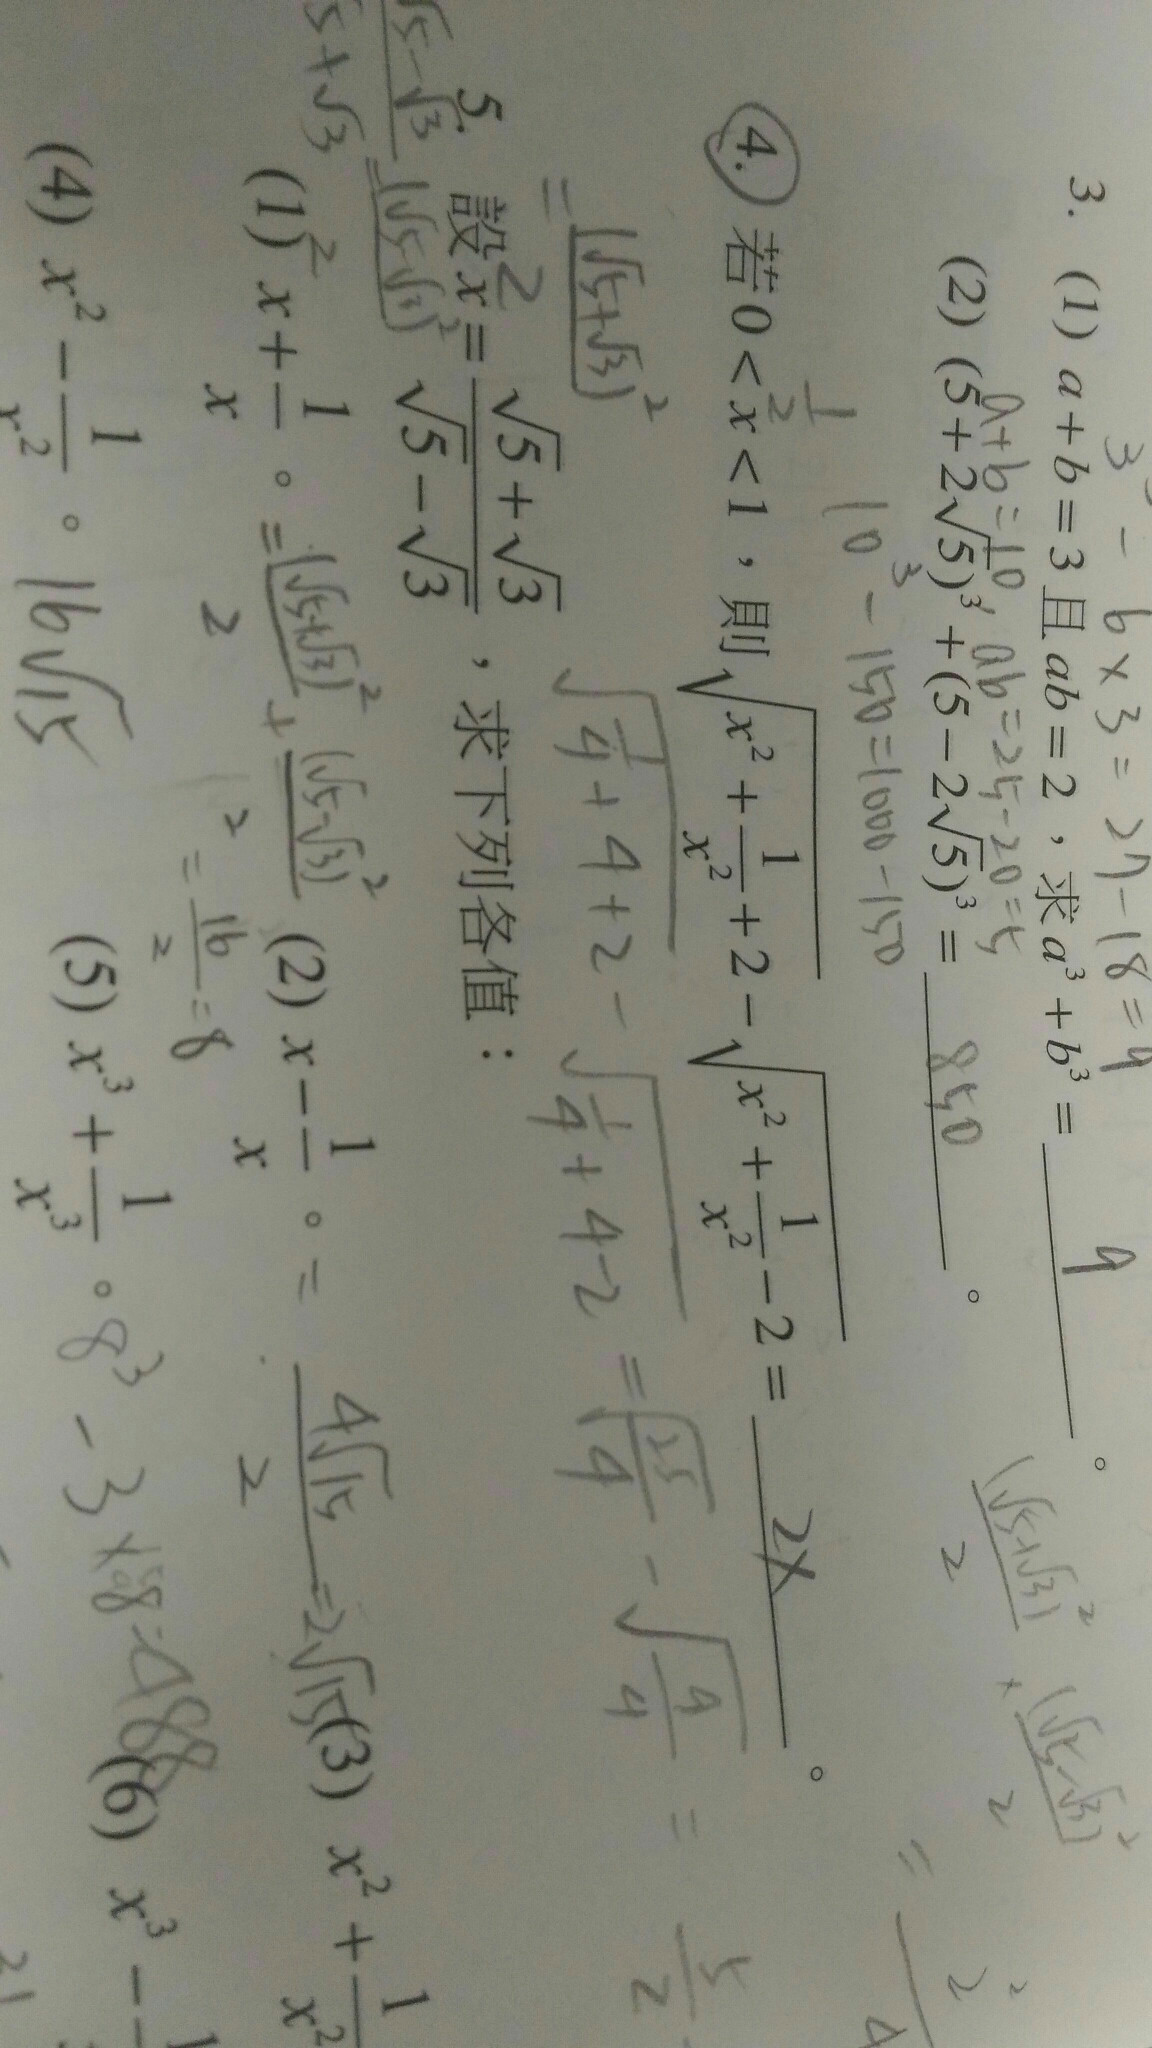 3³ - 6×3 = 27-18=9
3. (1) a+b=3且ab=2，求a³+b³= 9 。
a+b=10, ab=25-20=5
(2) (5+2√5)³+(5-2√5)³= 850 。
10³-150=1000-150
(√5+√3)²/2 × (√5-√3)²/2
1/2
4. 若0<x<1，則√(x²+1/x²+2)-√(x²+1/x²-2)= 2x 。
√(1/4+4+2) - √(1/4+4-2) = √(25/4) - √(9/4) = 5/2 -
= (√5+√3)²/2
5. 設x=(√5+√3)/(√5-√3)，求下列各值：
(√5-√3)/(√5+√3) = (√5-√3)²/2
(1) x+1/x。 = (√5+√3)²/2 + (√5-√3)²/2 = 16/2 = 8
(2) x-1/x。 = 4√15/2 = 2√15
(3) x²+1/x²
(4) x²-1/x²。 16√15
(5) x³+1/x³。 8³-3×8=488
(6) x³-1